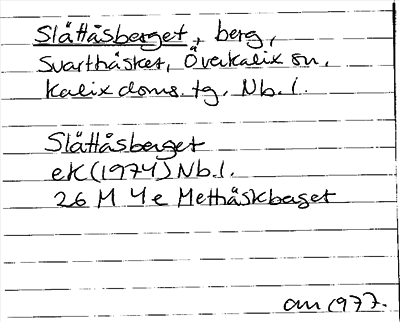 Slåttåsberget, berg,
Svartbäsket, Överkalix sn,
Kalix doms. tg, Nb. l.
Slåttåsberget
ek (1974) Nb. l.
26 M 4 e Metthåskberget
am 1977.